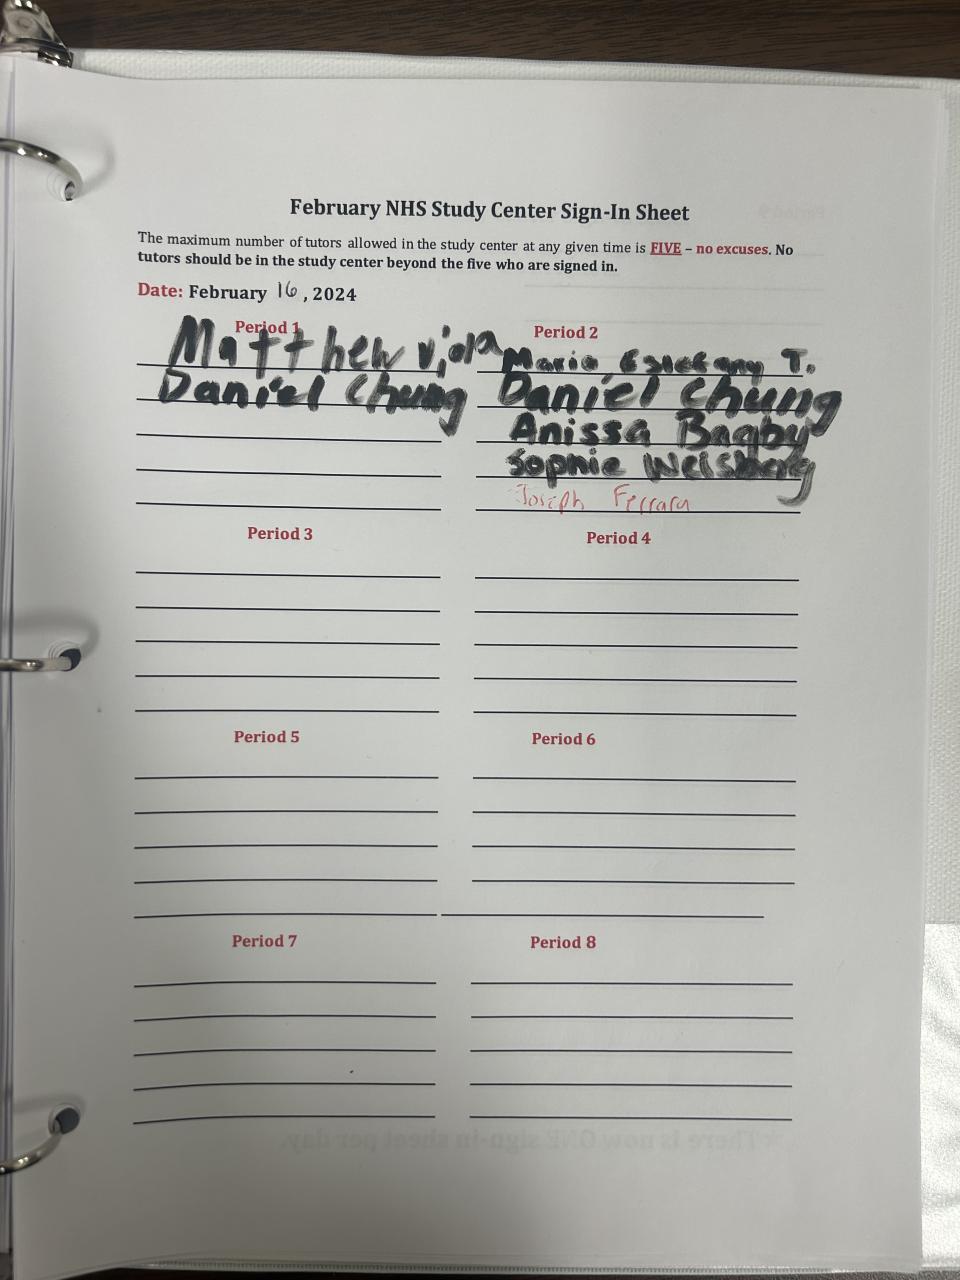 February NHS Study Center Sign-In Sheet
The maximum number of tutors allowed in the study center at any given time is FIVE – no excuses. No
tutors should be in the study center beyond the five who are signed in.
Date: February 16, 2024
Period 1
Matthew Viola
Daniel Chung
Period 2
Maria T.
Daniel Chung
Anissa Bagby
Sophie Weisberg
Joseph Ferrara
Period 3
Period 4
Period 5
Period 6
Period 7
Period 8
*There is now ONE sign-in sheet per day.